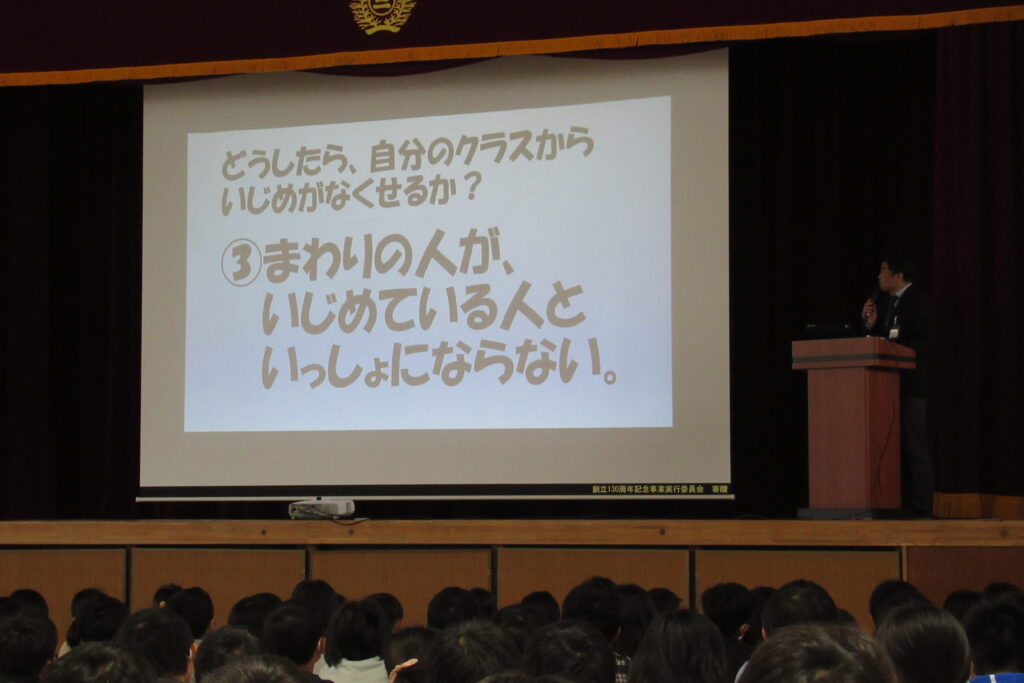 どうしたら、自分のクラスから
いじめがなくせるか？
③まわりの人が、
いじめている人と
いっしょにならない。
創立130周年記念事業実行委員会 寄贈